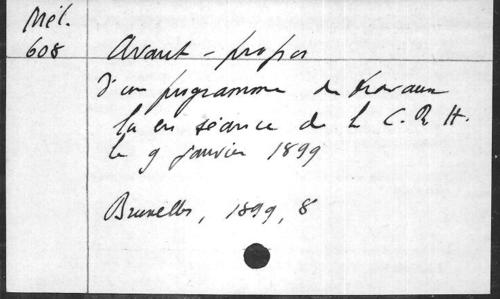 Mél.
608
Avant-propos
d'un programme de travaux
lu en séance de la C.R.H.
le 9 janvier 1899
Bruxelles, 1899, 8